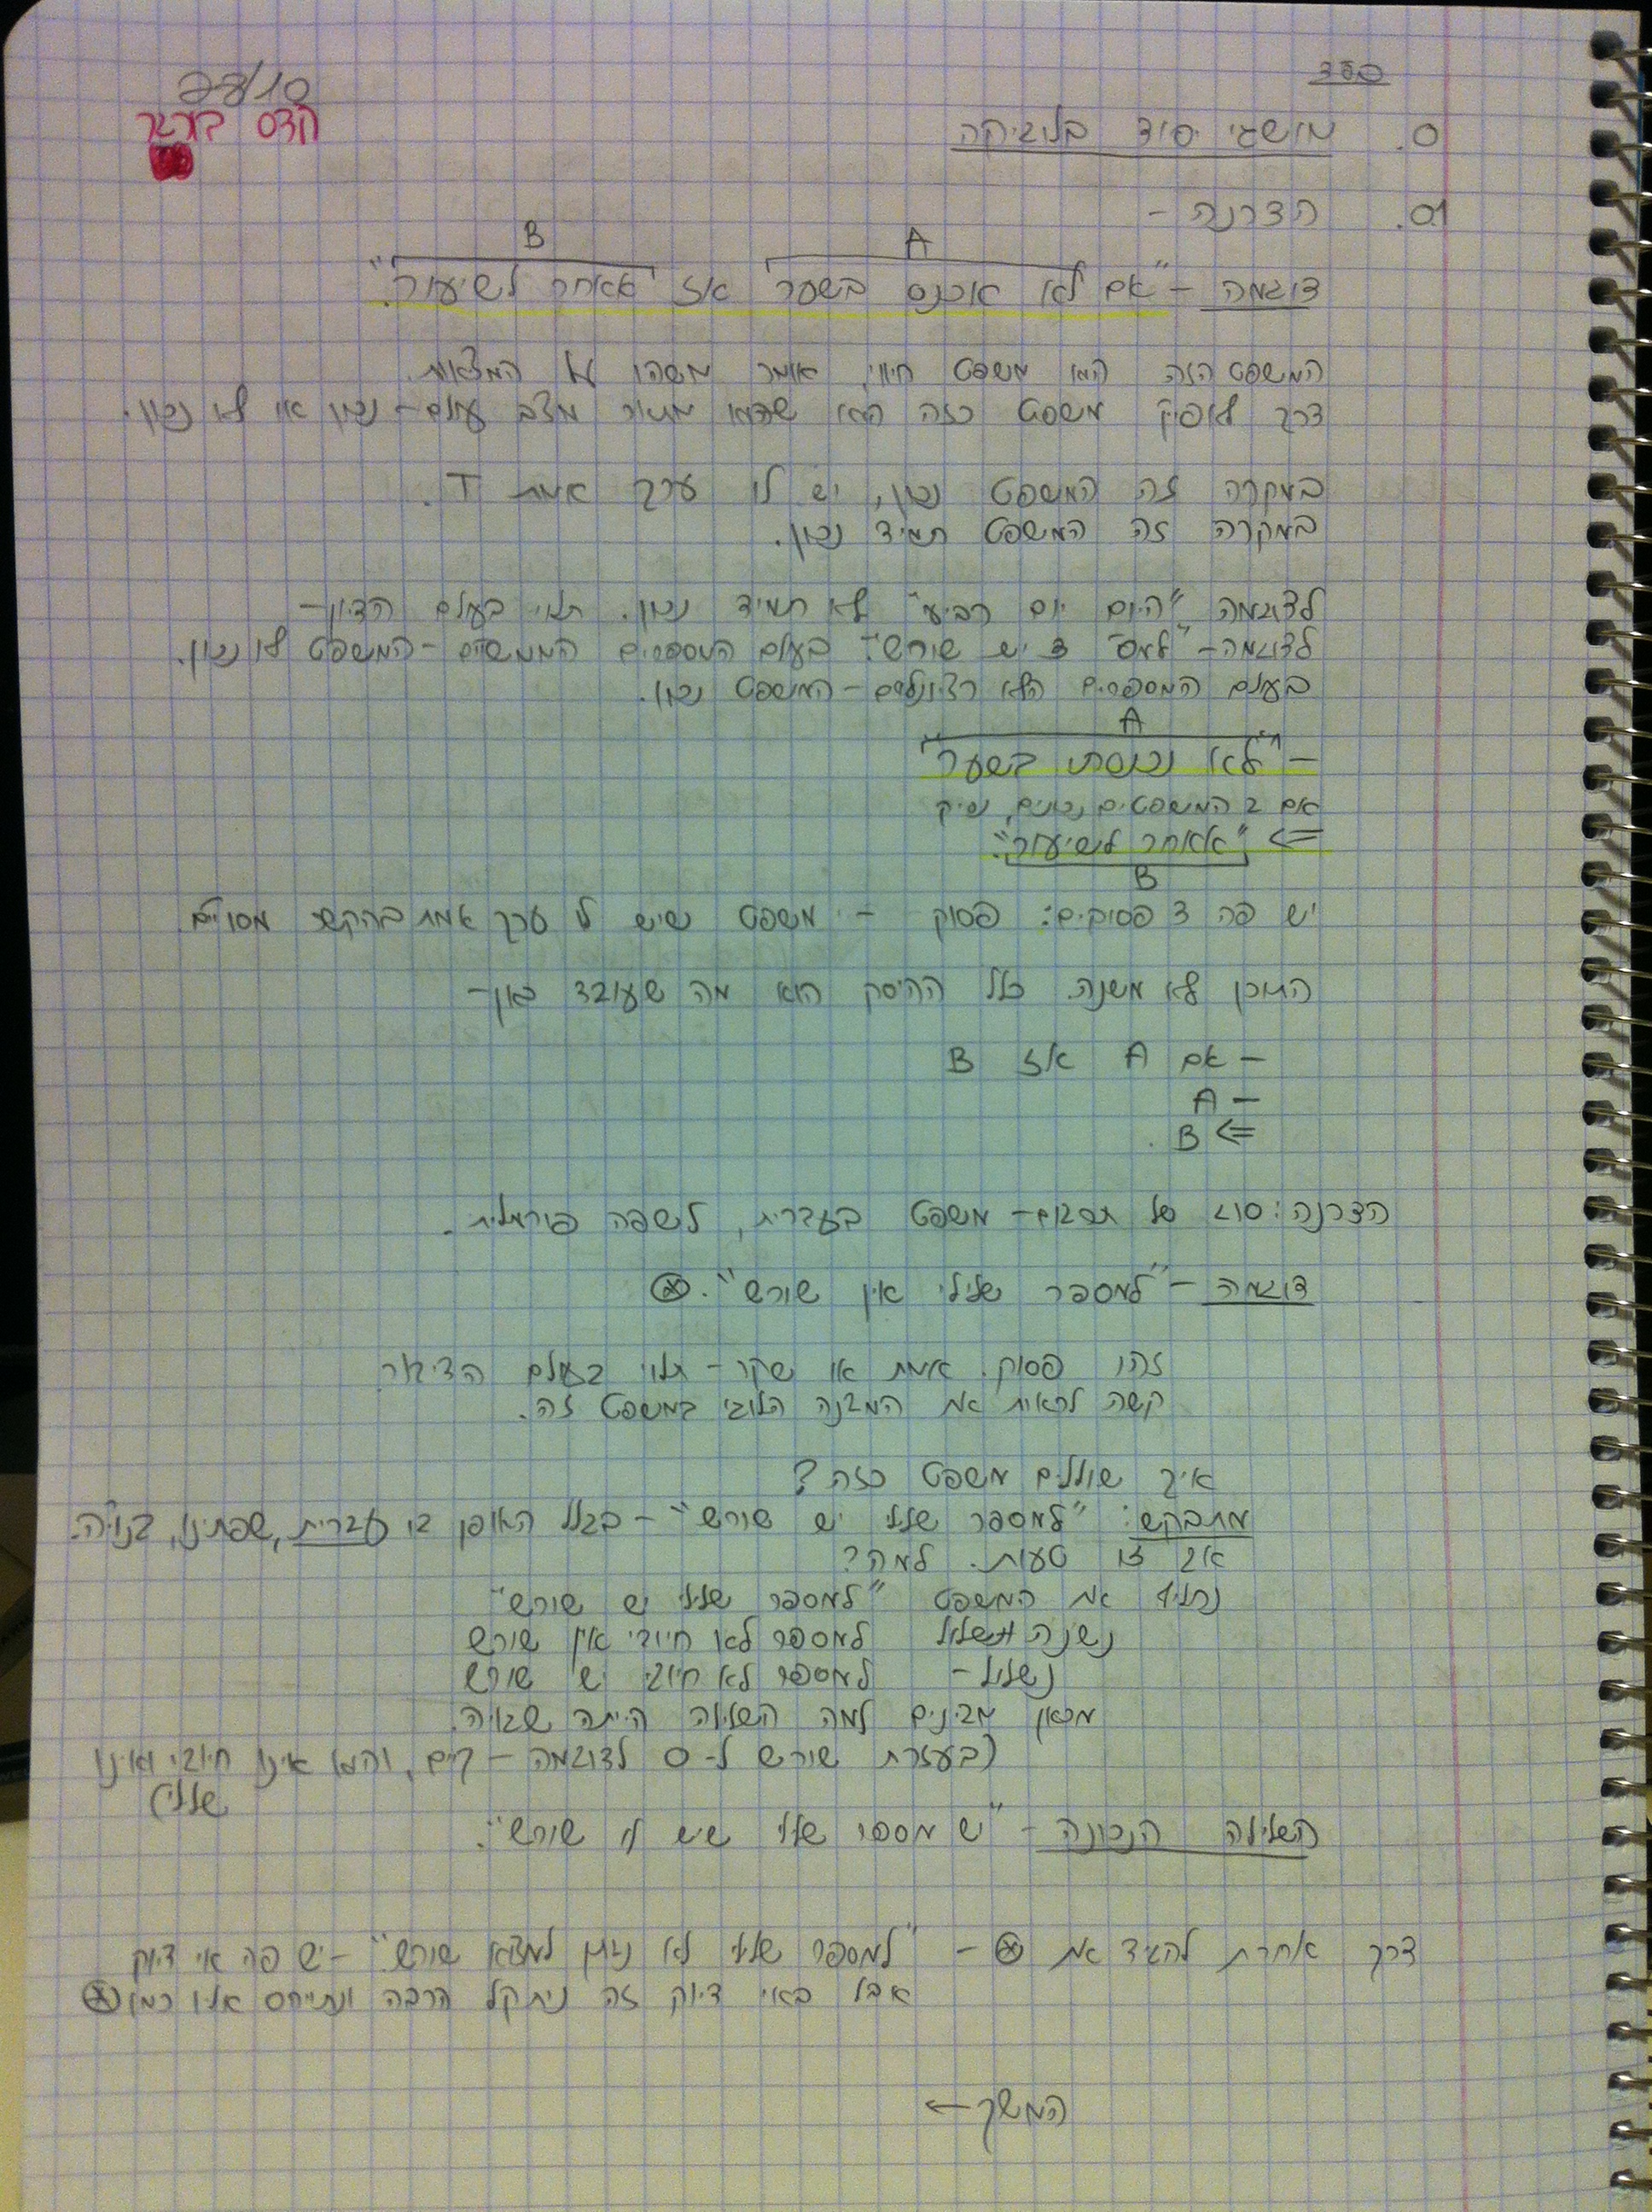 בס"ד
28/10
הדס בורגר
0. מושגי יסוד בלוגיקה
0.1 הצרנה -
B A
דוגמה - "אם לא אוכנס בשער אז אאחר לשיעור".
המשפט הזה הוא משפט חיווי, אומר משהו על המציאות.
דרך לאפיין משפט כזה הוא שהוא מתאר מצב עולם - נכון או לא נכון.
במקרה זה המשפט נכון, יש לו ערך אמת T.
במקרה זה המשפט תמיד נכון.
לדוגמה "היום יום רביעי" לא תמיד נכון. תלוי בעולם הדיון -
לדוגמה - "למס' 3 יש שורש": בעולם המספרים הממשיים - המשפט לא נכון.
בעולם המספרים הלא רציונלים - המשפט נכון.
A
- "לא נכנסתי בשער"
אם 2 המשפטים נכונים, נסיק
<= "אאחר לשיעור".
B
יש פה 3 פסוקים: פסוק - משפט שיש לו ערך אמת בהקשר מסויים.
התוכן לא משנה. כלל ההיסק הוא מה שעובד כאן -
- אם A אז B
- A
<= B.
הצרנה: סוג של תרגום - משפט בעברית, לשפה פורמלית.
דוגמה - "למספר שלילי אין שורש". ⊛
זהו פסוק. אמת או שקר - תלוי בעולם הדיבור.
קשה לראות את המבנה הלוגי במשפט זה.
איך שוללים משפט כזה?
מתבקש: "למספר שלילי יש שורש" - בגלל האופן בו עברית, שפתינו, בנויה.
אך זו טעות. למה?
נחליף את המשפט "למספר שלילי יש שורש"
נשנה למספר לא חיובי אין שורש
נשלול - למספר לא חיובי יש שורש
מכאן מבינים למה השלילה הייתה שגויה.
(בעזרת שורש ל-0 לדוגמה - קיים, והוא אינו חיובי ואינו
שלילי)
השלילה הנכונה - "יש מספר שלילי שיש לו שורש".
דרך אחרת להגיד את ⊛ - "למספר שלילי לא ניתן למצוא שורש" - יש פה אי דיוק
אבל באי דיוק זה ניתקל הרבה ונתייחס אליו כמו ⊛
המשך ←